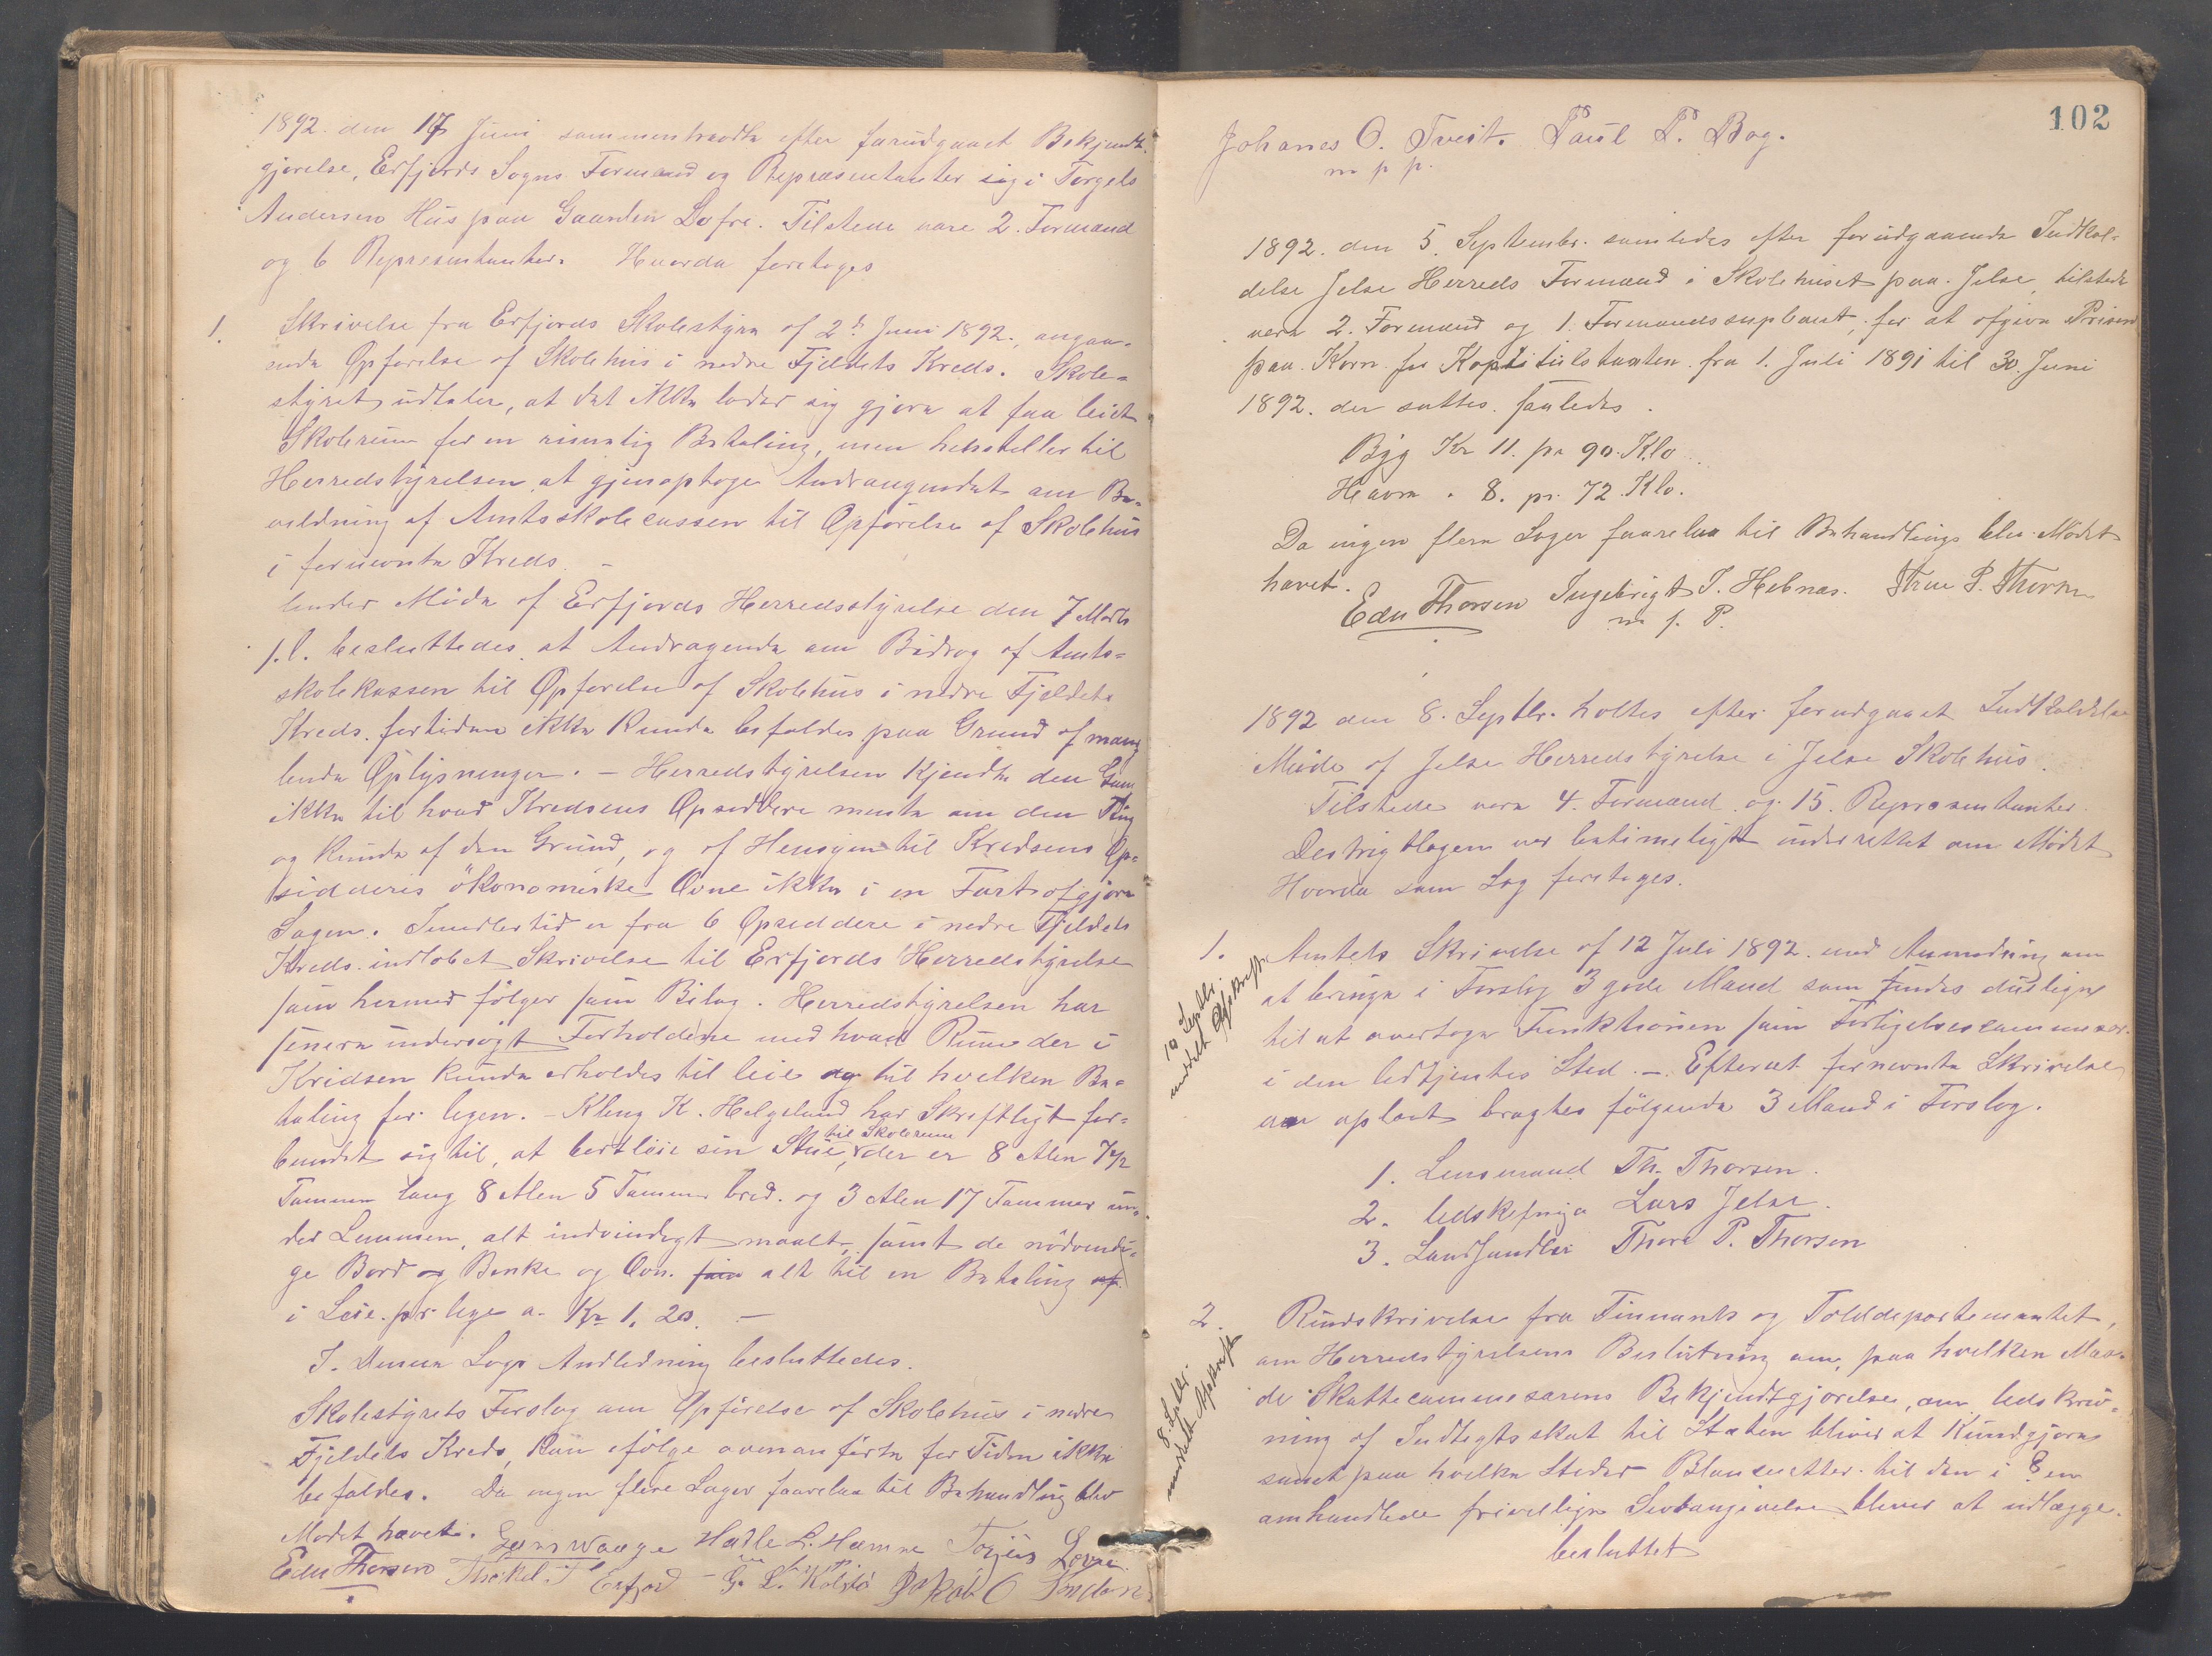 1892. den 17 Juni sammentraadte efter forudgaaet Bekjendt-
gjørelse, Erfjords Sogns Formænd og Repræsentanter sig i Torgels
Andersens Hus paa Gaarden Lofre. Tilstede vare 2. Formænd
og 6 Repræsentanter. Hvorda foretoges
1. Skrivelse fra Erfjords Skolestyre af 2de Juni 1892., angaa-
ende Opførelse af Skolehus i nedre Fjeldets Kreds. Skole-
styret udtaler, at det ikke lader sig gjøre at faa leiet
Skolerum for en rimelig Betaling, men henstiller til
Herredstyrelsen at gjenoptage Andragendet om Be-
vildning af Amtsskolecassen til Opførelse af Skolehus
i fornevnte Kreds. –
Under Møde af Erfjords Herredsstyrelse den 7 Marts
f.l. besluttedes at Andragende om Bidrag af Amts-
skolekassen til Opførelse af Skolehus i nedre Fjeldets
Kreds. fortiden ikke kunde befaldes paa Grund af mang
lende Oplysninger. – Herredstyrelsen kjendte den Gang
ikke til hvad Kredsens Opsiddere mente om den Ting
og kunde af den Grund, og af Hensyn til Kredsens Op-
sidderes økonomiske Evne ikke i en Fart afgjøre
Sagen. Imidlertid er fra 6 Opsiddere i nedre Fjeldets
Kreds. indløbet Skrivelse til Erfjords Herredstyrelse
som hermed følger som Bilag. Herredstyrelsen har
senere undersøgt Forholdene med hvad Rum der i
Kridsen kunde erholdes til leie og til hvilken Be-
taling for Ugen. – Kleng K. Helgeland har Skriftligt for-
bundet sig til, at bortleie sin Stue, til Skolerum der er 8 Alen 7½
Tommer lang 8 Alen 5 Tommer bred. og 3 Alen 17 Tommer un-
der Lemmen, alt indvendigt maalt, samt de nødvendi-
ge Bord og Benke og Ovn. som alt til en Betaling af
i Leie. pr Uge a. Kr 1,20. –
I. Denne Sags Anledning besluttedes.
Skolestyrets Forslag om Opførelse af Skolehus i nedre
Fjeldets Kreds, kan ifølge ovenanførte for Tiden ikke
befaldes. Da ingen flere Sager foorelaa til Behandling blev
Mødet hævet.
Lars Waage Halle L. Hamre Torjus Lovre
Edu Thorsen Thorkel T Erfjord – G. L. Kolstø Jakob O
102
Johanes O. Tveit. Paul P. Bog.
m p p.
1892. den 5. Septembr. samledes efter forudgaaende Indkal-
delse Jelse Herreds Formænd i Skolehuset paa Jelse, tilstede
vare 2. Formænd og 1. Formandssupleant, for at afgive Prisen
paa. Korn for Kapitelstaxten fra 1. Juli 1891 til 30. Juni
1892. der sattes. saaledes.
Byg Kr 11. pr 90. Klo
Havre. 8. pr. 72. Klo.
Da ingen flere Sager foorelaa til Behandlings blev Mødet
hævet.
Edu Thorsen Ingebrigt I. Hebnes. Thore P. Thorsen
m. p. P.
1892 den 8. Septbr. holtes efter forudgaaet Indkaldelse
Møde af Jelse Herredstyrelse i Jelse Skolehus.
Tilstede vare 4. Formænd og 15. Repræsentanter.
Destrigtlægen var betimeligt underrettet om Mødet
Hvorda som Sag foretoges.
10 Septbr
meddelt Afskrift
1. Amtets Skrivelse af 12 Juli 1892. med Anmodning om
at bringe i Forslag 3 gode Mænd som findes duelige
til at overtage Funktionen som Forligelsescommissær.
i den Udtjentes Sted. –. Efterat fornevnte Skrivelse
var oplæst bragtes følgende 3 Mænd i Forslag.
1. Lensmand Th. Thorsen.
2. Udskifniga Lars Jelse.
3. Landhandler Thore P. Thorsen
8. Septbr
meddelt Afskrift
2. Rundskrivelse fra Finants og Tolddepartementet,
om Herredstyrelsens Beslutning om, paa hvilken Maa-
de Skattecommesærens Bekjendtgjørelse, om Udskriv-
ning af Indtægtsskat til Staten bliver at Kundgjøre
samt paa hvilke Steder Blanketter til den i § en
omhandlede frivillige Selvangivelse bliver at udlægge.
besluttet